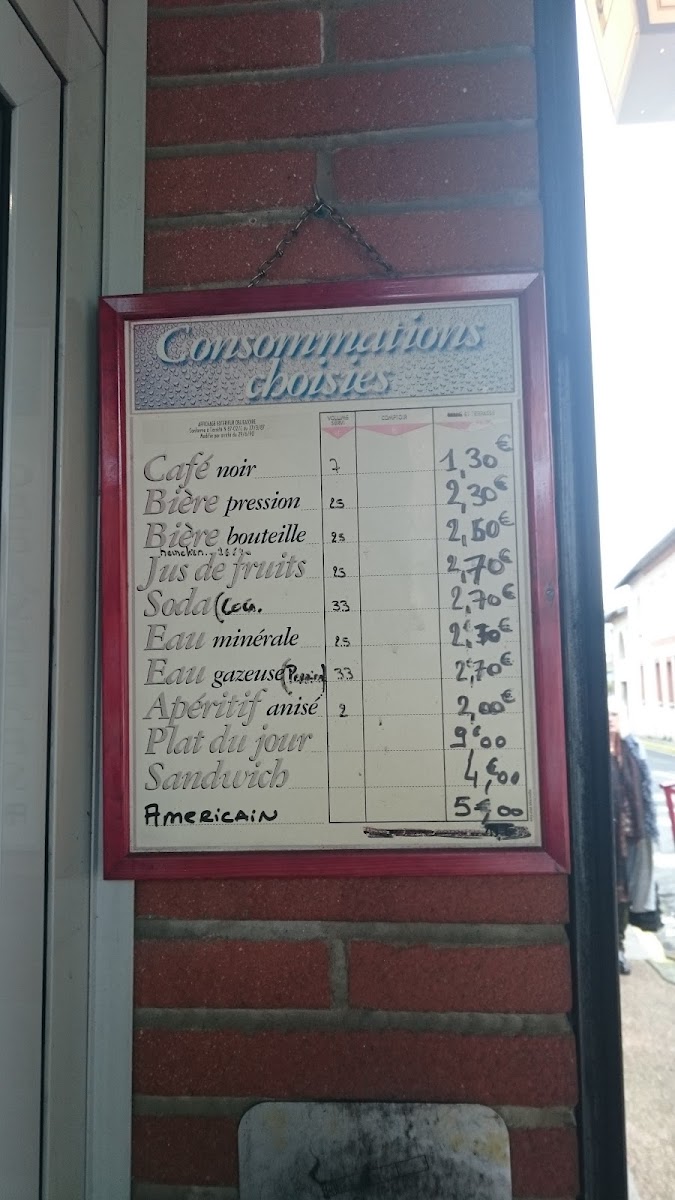 Consommations
choisies
AFFICHAGE EXTERIEUR OBLIGATOIRE
VOLUME
COMPTOIR
Café noir 7 1,30€
Bière pression 25 2,30€
Bière bouteille 25 2,50€
Jus de fruits 25 2,70€
Soda 33 2,70€
Eau minérale 25 2,30€
Eau gazeuse (Perrier) 33 2,70€
Apéritif anisé 2 2,00€
Plat du jour 9€00
Sandwich 4€,00
AMERICAIN 5€,00